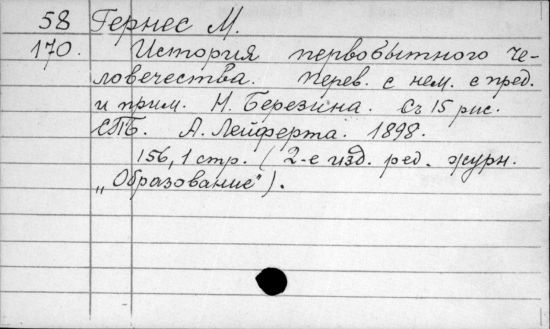 58 Гернес М.
170. История первобытного че-
ловечества. Перев. с нем. с пред.
и прим. Н. Березина. Съ 15 рис.
СПБ. А. Лейферта. 1898.
156, 1 стр. (2-е изд. ред. журн.
„Образование").